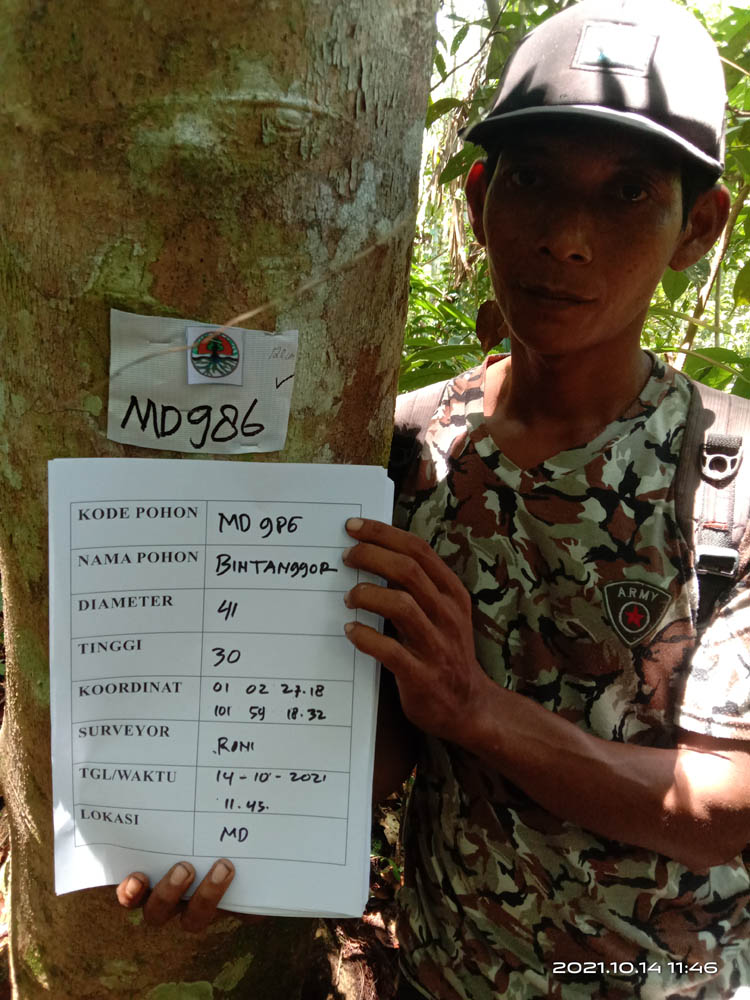 MD986
KODE POHON MD 986
NAMA POHON BINTANGGOR
DIAMETER 41
TINGGI 30
KOORDINAT 01 02 27.18
101 59 18.32
SURVEYOR RONI
TGL/WAKTU 14-10-2021
11.45.
LOKASI MD
ARMY
2021.10.14 11:46